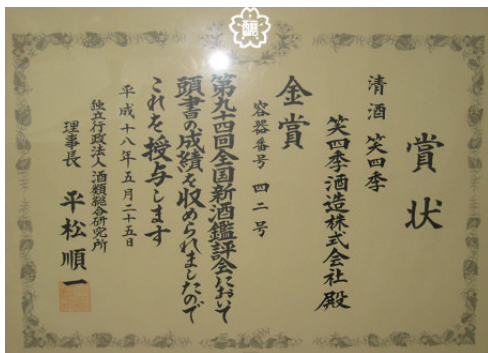 賞状
清酒 笑四季
笑四季酒造株式会社殿
金賞
容器番号 四二号
第九十四回全国新酒鑑評会において
頭書の成績を収められましたので
これを授与します
平成十八年五月二十五日
独立行政法人酒類総合研究所
理事長 平松順一